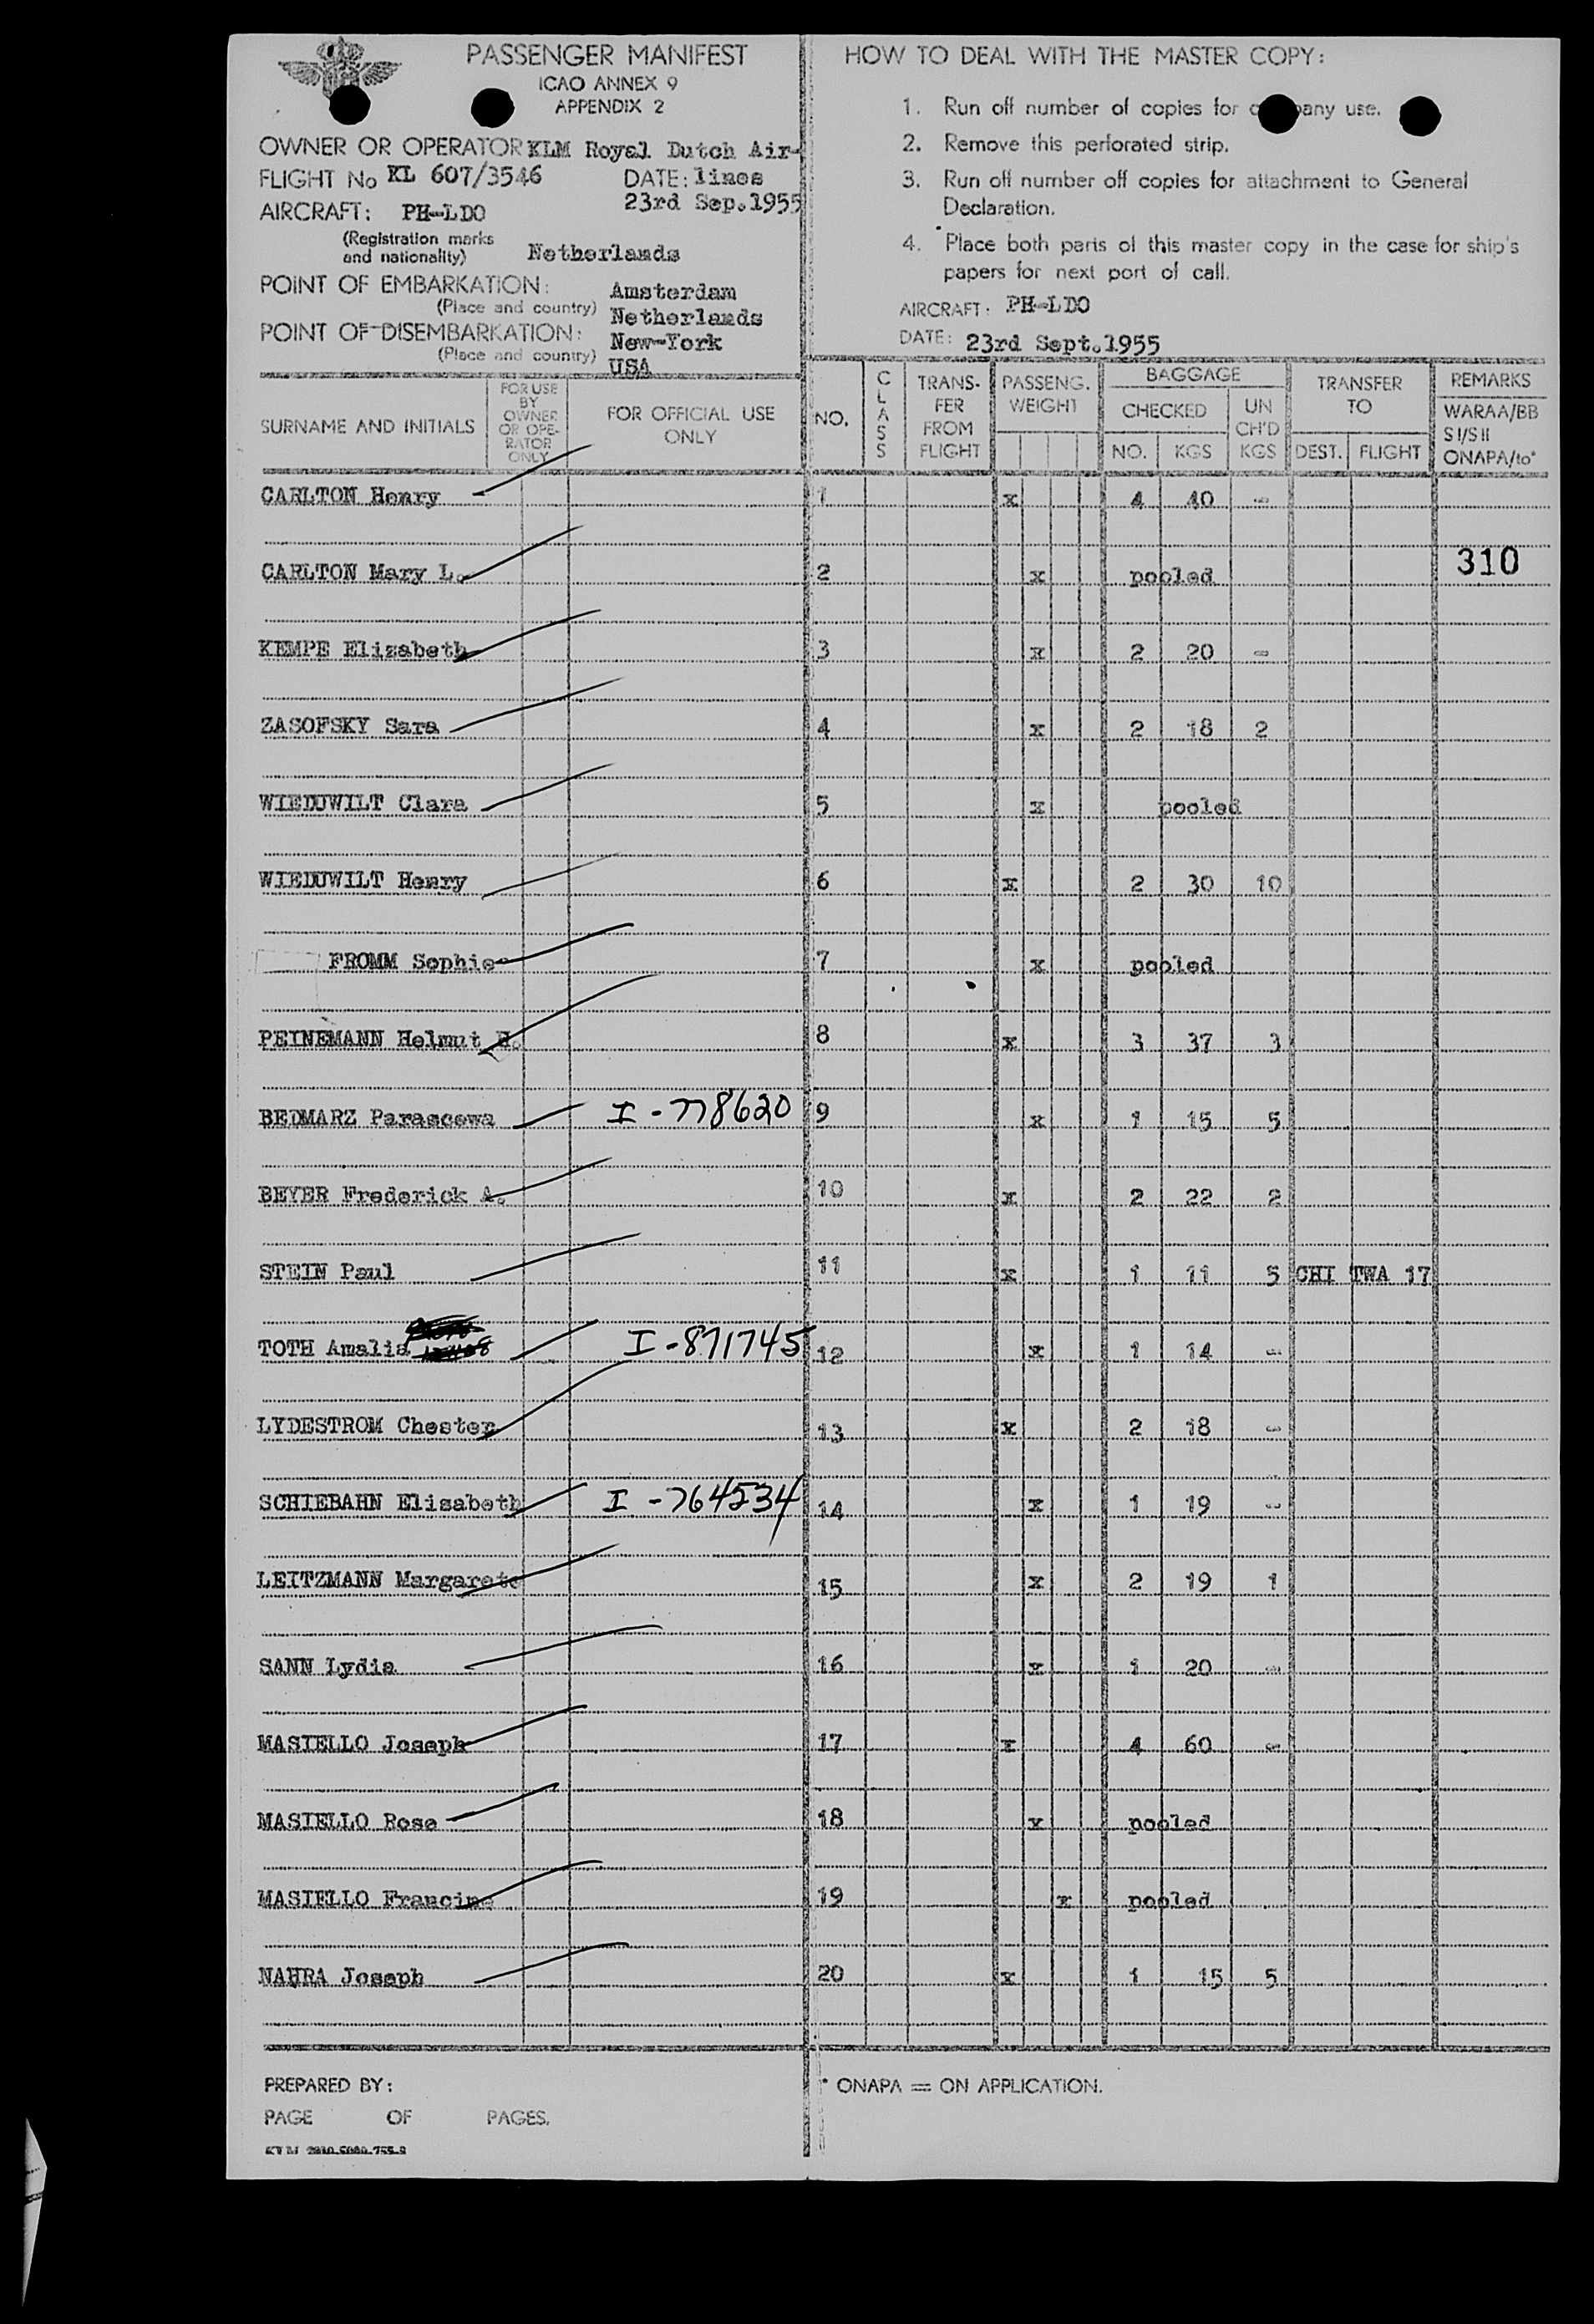 PASSENGER MANIFEST
ICAO ANNEX 9
APPENDIX 2
OWNER OR OPERATOR KLM Royal Dutch Air-
FLIGHT No KL 607/3546 DATE: lines
23rd Sep.1955
AIRCRAFT: PH-LDO
(Registration marks
and nationality) Netherlands
POINT OF EMBARKATION: Amsterdam
(Place and country) Netherlands
POINT OF DISEMBARKATION: New-York
(Place and country) USA
HOW TO DEAL WITH THE MASTER COPY:
1. Run off number of copies for company use.
2. Remove this perforated strip.
3. Run off number off copies for attachment to General
Declaration.
4. Place both parts of this master copy in the case for ship's
papers for next port of call.
AIRCRAFT: PH-LDO
DATE: 23rd Sept.1955
SURNAME AND INITIALS FOR USE BY OWNER OR OPE- RATOR ONLY FOR OFFICIAL USE ONLY NO. CLASS TRANS- FER FROM FLIGHT PASSENG. WEIGHT BAGGAGE CHECKED NO. KGS UN CH'D KGS TRANSFER TO DEST. FLIGHT REMARKS WARAA/BB SI/SII ONAPA/to*
CARLTON Henry 1 x 4 40 -
CARLTON Mary L. 2 x pooled 310
KEMPE Elizabeth 3 x 2 20 -
ZASOFSKY Sara 4 x 2 18 2
WIEDUWILT Clara 5 x pooled
WIEDUWILT Henry 6 x 2 30 10
FROMM Sophie 7 x pooled
PEINEMANN Helmut H. 8 x 3 37 3
BEDMARZ Parascewa I-778620 9 x 1 15 5
BEYER Frederick A. 10 x 2 22 2
STEIN Paul 11 x 1 11 5 CHI TWA 17
TOTH Amalia I-871745 12 x 1 14 -
LYDESTROM Chester 13 x 2 18 -
SCHIEBAHN Elisabeth I-764534 14 x 1 19 -
LEITZMANN Margarete 15 x 2 19 1
SANN Lydia 16 x 1 20 -
MASIELLO Joseph 17 x 4 60 -
MASIELLO Rose 18 x pooled
MASIELLO Francine 19 x pooled
NAHRA Joseph 20 x 1 15 5
PREPARED BY:
PAGE OF PAGES.
* ONAPA = ON APPLICATION.